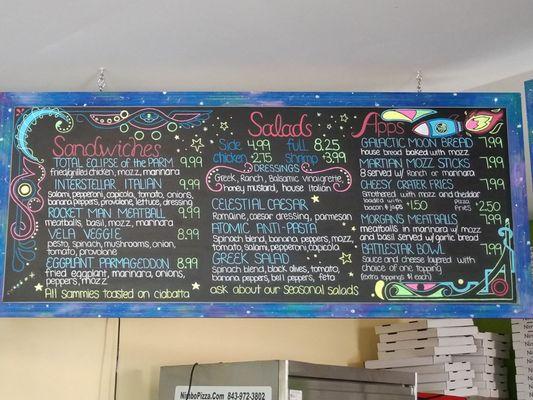 Sandwiches
TOTAL ECLIPSE OF THE PARM 9.99
fried/grilled chicken, mozz, marinara
INTERSTELLAR ITALIAN 9.99
salami, pepperoni, capicola, tomato, onions,
banana peppers, provolone, lettuce, dressing
ROCKET MAN MEATBALL 9.99
meatballs, basil, mozz, marinara
VELA VEGGIE 8.99
pesto, spinach, mushrooms, onion,
tomato, provolone
EGGPLANT PARMAGEDDON 8.99
fried eggplant, marinara, onions,
peppers, mozz
All Sammies toasted on ciabatta
Salads
side 4.99 full 8.25
chicken +2.75 shrimp +3.99
DRESSINGS
house, Greek, Ranch, Balsamic Vinaigrette
honey mustard, house Italian
CELESTIAL CAESAR
Romaine, caesar dressing, parmesan
ATOMIC ANTI-PASTA
Spinach blend, banana peppers, mozz,
tomato, salami, pepperoni, capicola
GREEK SALAD
Spinach blend, black olives, tomato,
banana peppers, bell peppers, feta
ask about our Seasonal salads
Apps
GALACTIC MOON BREAD 7.99
house bread baked with mozz
MARTIAN MOZZ STICKS 7.99
8 served w/ Ranch or marinara
CHEESY CRATER FRIES 7.99
Smothered with mozz and cheddar
loaded with bacon +1.50 pizza fries +2.50
MORGANS MEATBALLS 7.99
meatballs in marinara w/ mozz
and basil served w/ garlic bread
BATTLESTAR BOWL 7.99
Sauce and cheese layered with
choice of one topping
(extra toppings $1 each)
NimboPizza.Com 843-972-3802